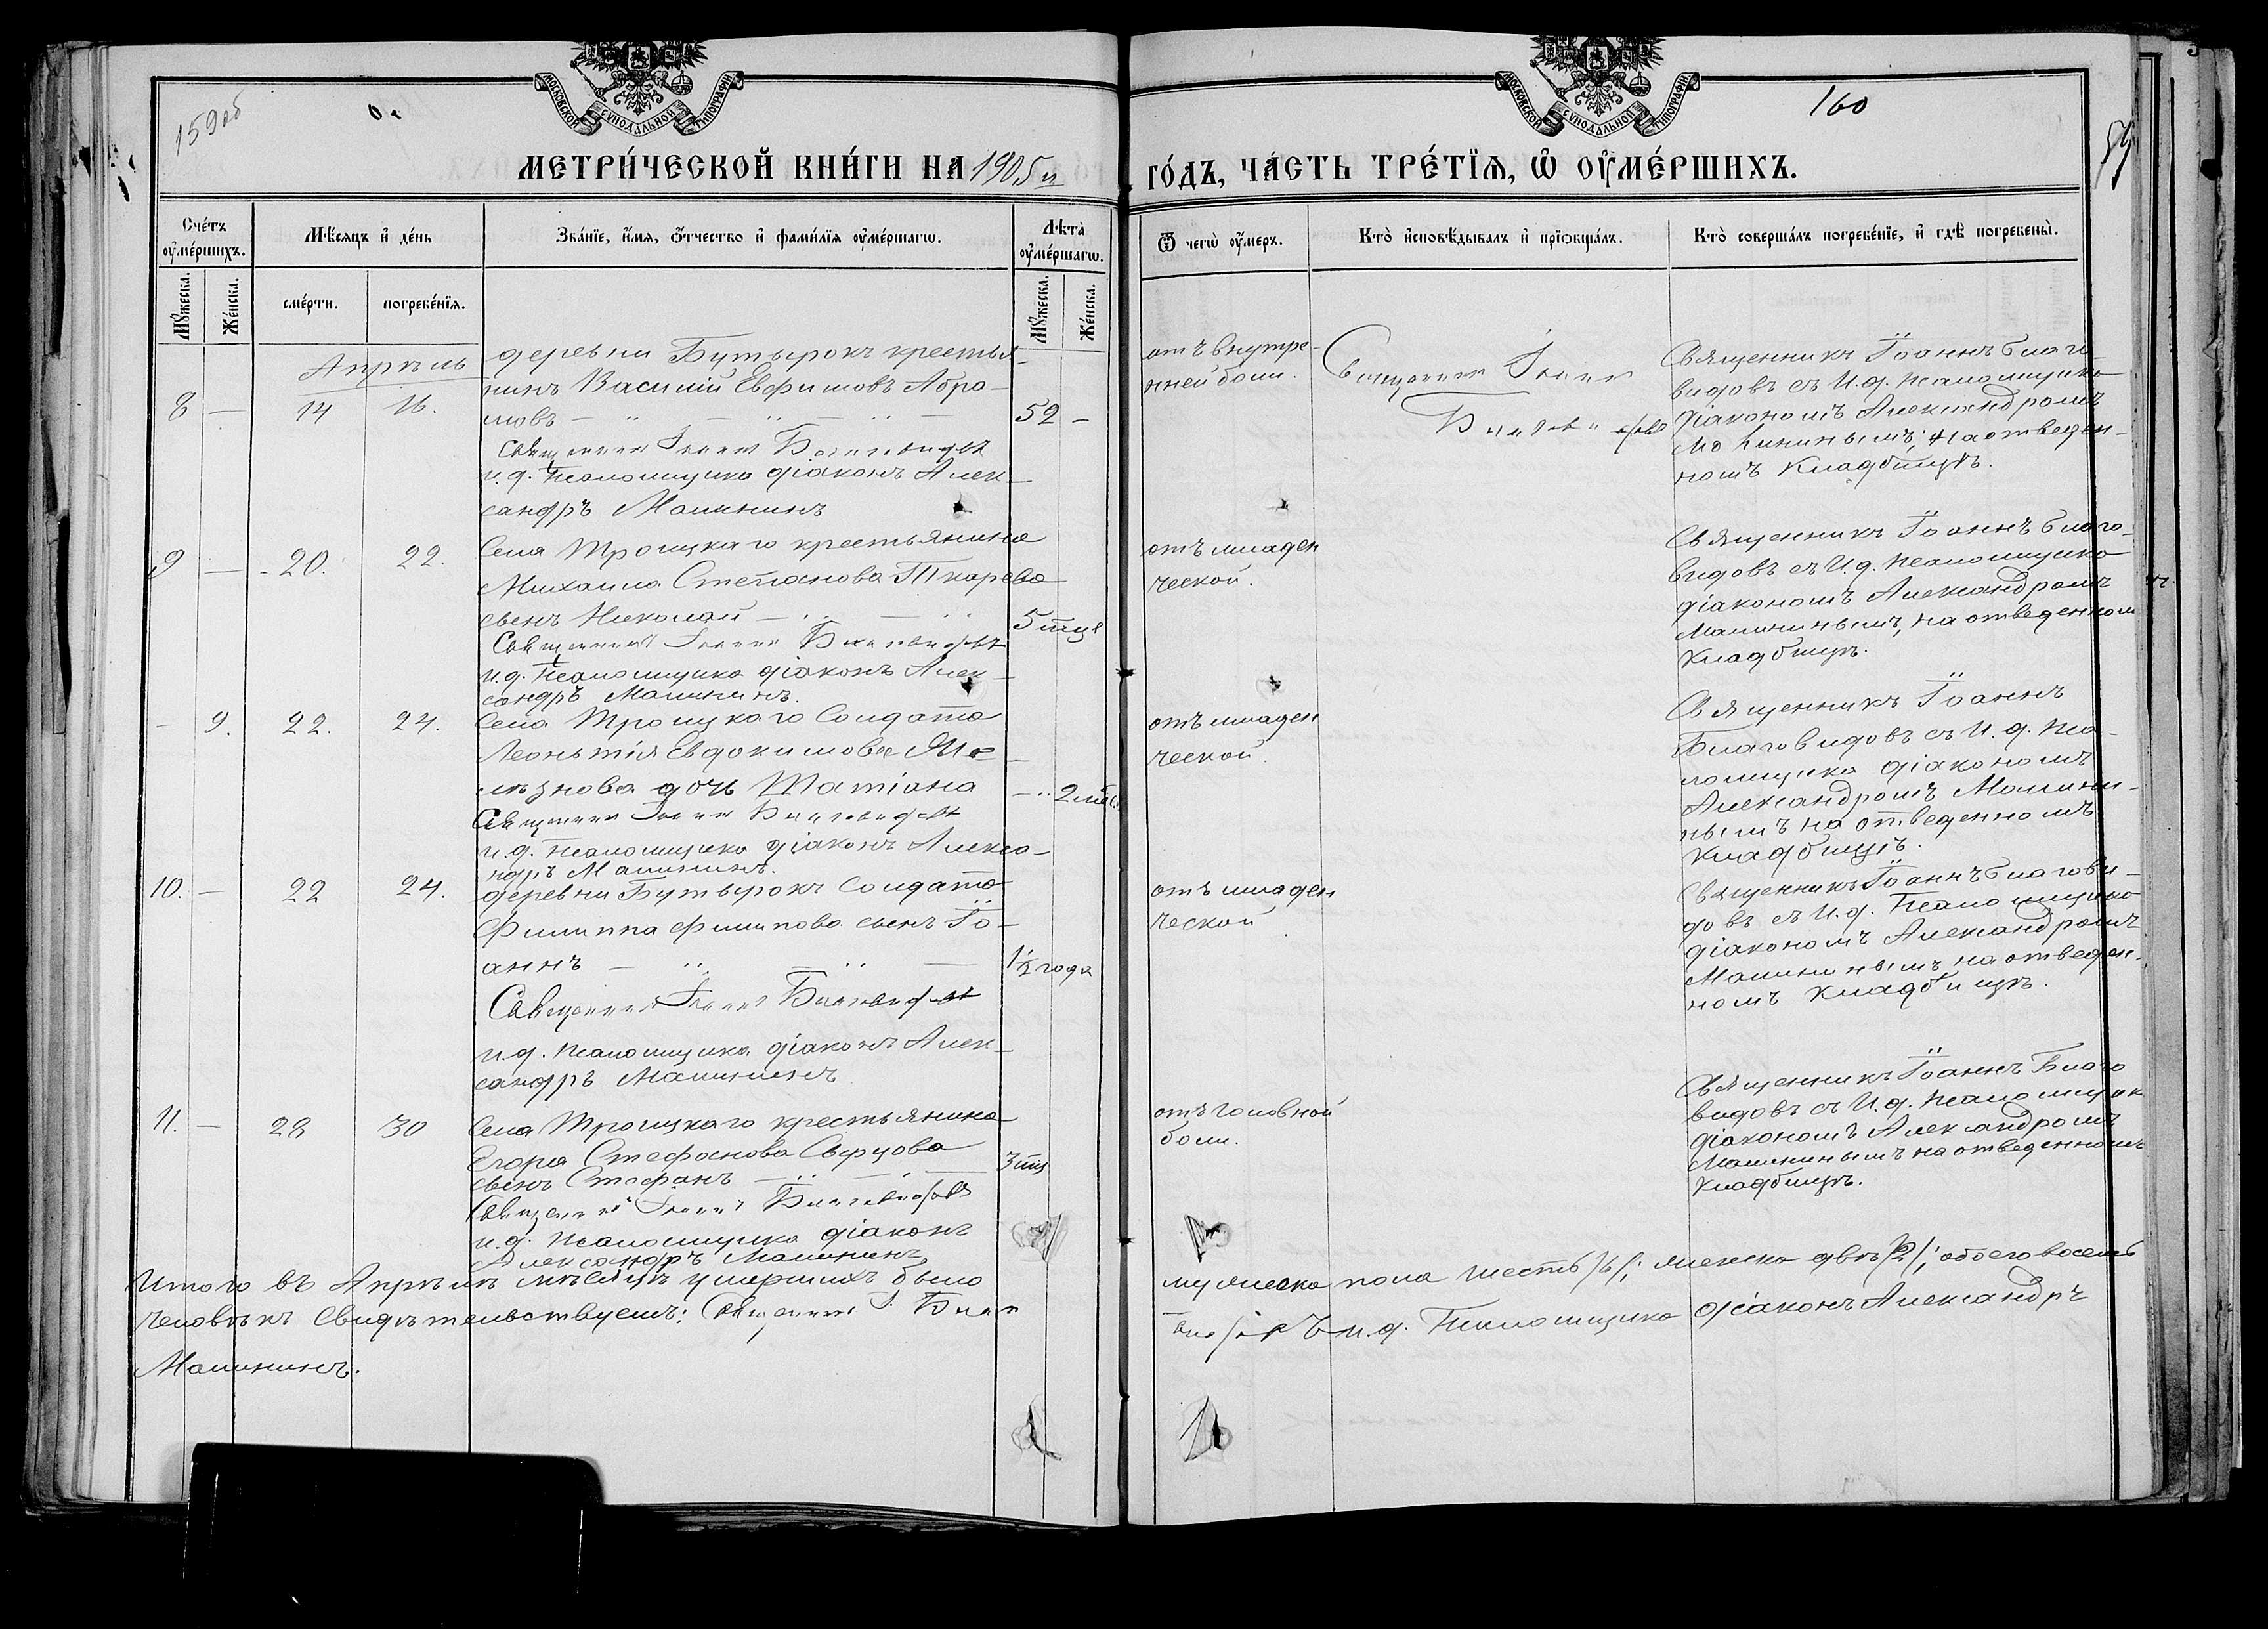 159 об
160
59
МОСКОВСКОЙ СУНОДАЛЬНОЙ ТИПОГРАФІИ
МОСКОВСКОЙ СУНОДАЛЬНОЙ ТИПОГРАФІИ
МЕТРИ́ЧЕСКОЙ КНИ́ГИ НА 1905 й го́дъ, ЧА́СТЬ ТРЕ́ТЇѦ, Ѡ ОУМЕ́РШИХЪ.
Сче́тъ оуме́ршихъ.
Мꙋжеска. Же́нска.
Мѣсяцъ и де́нь
сме́рти. погребе́нїѧ.
Зва́нїе, и́мѧ, о́тчество и фами́лїѧ оуме́ршагѡ.
Лѣта̀ оуме́ршагѡ.
Мꙋжеска. Же́нска.
Ѿ чегѡ̀ оу́меръ.
Кто̀ исповѣ́дывалъ и прїѡбща́лъ.
Кто̀ соверша́лъ погребе́нїе, и гдѣ̀ погребены̀.
Апрѣль
8 — 14 16.
деревни Бутырокъ крестья-
нинъ Василій Евфимовъ Абра-
мовъ — " — " — " — 52 —
Священникъ Іоаннъ Благовидовъ
и. д. псаломщика діаконъ Алек-
сандръ Малининъ
отъ внутре-
нней боли.
Священникъ Іоаннъ
Благовидовъ
Священникъ Іоаннъ Благо-
видовъ съ И. д. псаломщика
діакономъ Александромъ
Малининымъ; на отведен-
номъ кладбищѣ.
9 — 20. 22.
Села Троицкаго крестьянина
Михаила Степанова Токарева
сынъ Николай — " — " 5 мце
Священникъ Іоаннъ Благовидовъ
и. д. псаломщика діаконъ Алек-
сандръ Малининъ.
отъ младен
ческой.
Священникъ Іоаннъ Благо-
видовъ съ И. д. псаломщика
діакономъ Александромъ
Малининымъ, на отведенном
кладбищѣ.
— 9. 22. 24.
Села Троицкаго Солдата
Леонтія Евдокимова
дочь Татіана — " 2 мѣс
Священникъ Іоаннъ Благовидовъ
и. д. псаломщика діаконъ Алекса-
ндръ Малининъ.
отъ младен
ческой.
Священникъ Іоаннъ
Благовидовъ съ И. д. пса-
ломщика діакономъ
Александромъ Малини-
нымъ на отведенномъ
кладбищѣ.
10. — 22 24.
деревни Бутырокъ Солдата
Филиппа Филипова сынъ Іо-
аннъ — " — " — 1½ года
Священникъ Іоаннъ Благовидовъ
и. д. псаломщика діаконъ Алек-
сандръ Малининъ
отъ младен
ческой
Священникъ Іоаннъ Благови-
довъ съ И. д. псаломщика
діакономъ Александромъ
Малининымъ на отведен-
номъ кладбищѣ.
11. — 28 30
Села Троицкаго крестьянина
Егора Стефанова
сынъ Стефанъ — " — " — 3 мц
Священникъ Іоаннъ Благовидовъ
и. д. псаломщика діаконъ
Александръ Малининъ
отъ головной
боли.
Священникъ Іоаннъ Благо
видовъ съ И. д. псаломщик
діакономъ Александромъ
Малининымъ на отведенномъ
кладбищѣ.
Итого въ Апрѣлѣ мѣсяцѣ умершихъ было мужеска пола шесть /6/; женска двѣ /2/; обоего восемь
человѣкъ свидѣтельствуемъ: Священникъ І. Благовидовъ и. д. Псаломщика діаконъ Александръ
Малининъ.